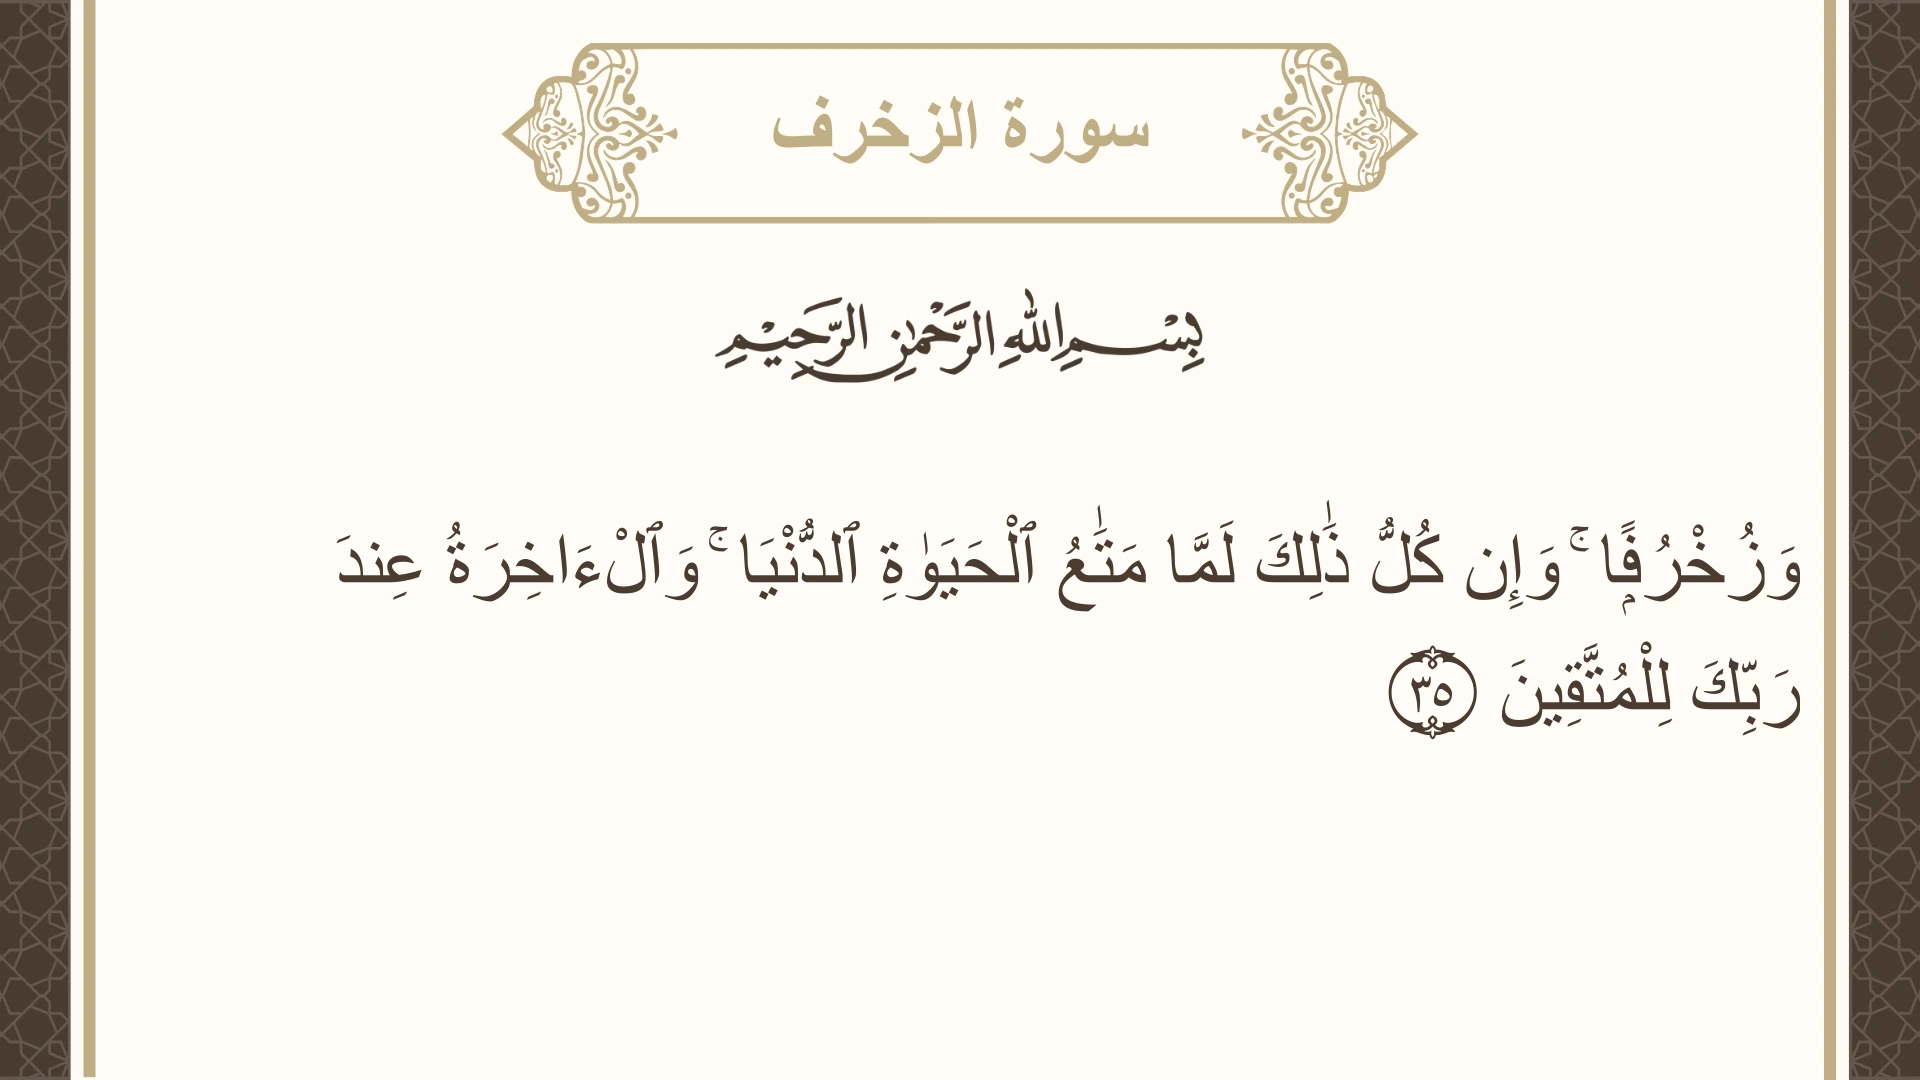 سورة الزخرف
بِسْمِ اللهِ الرَّحْمٰنِ الرَّحِيْمِ
وَزُخْرُفًۭا ۚ وَإِن كُلُّ ذَٰلِكَ لَمَّا مَتَـٰعُ ٱلْحَيَوٰةِ ٱلدُّنْيَا ۚ وَٱلْءَاخِرَةُ عِندَ
رَبِّكَ لِلْمُتَّقِينَ ٣٥